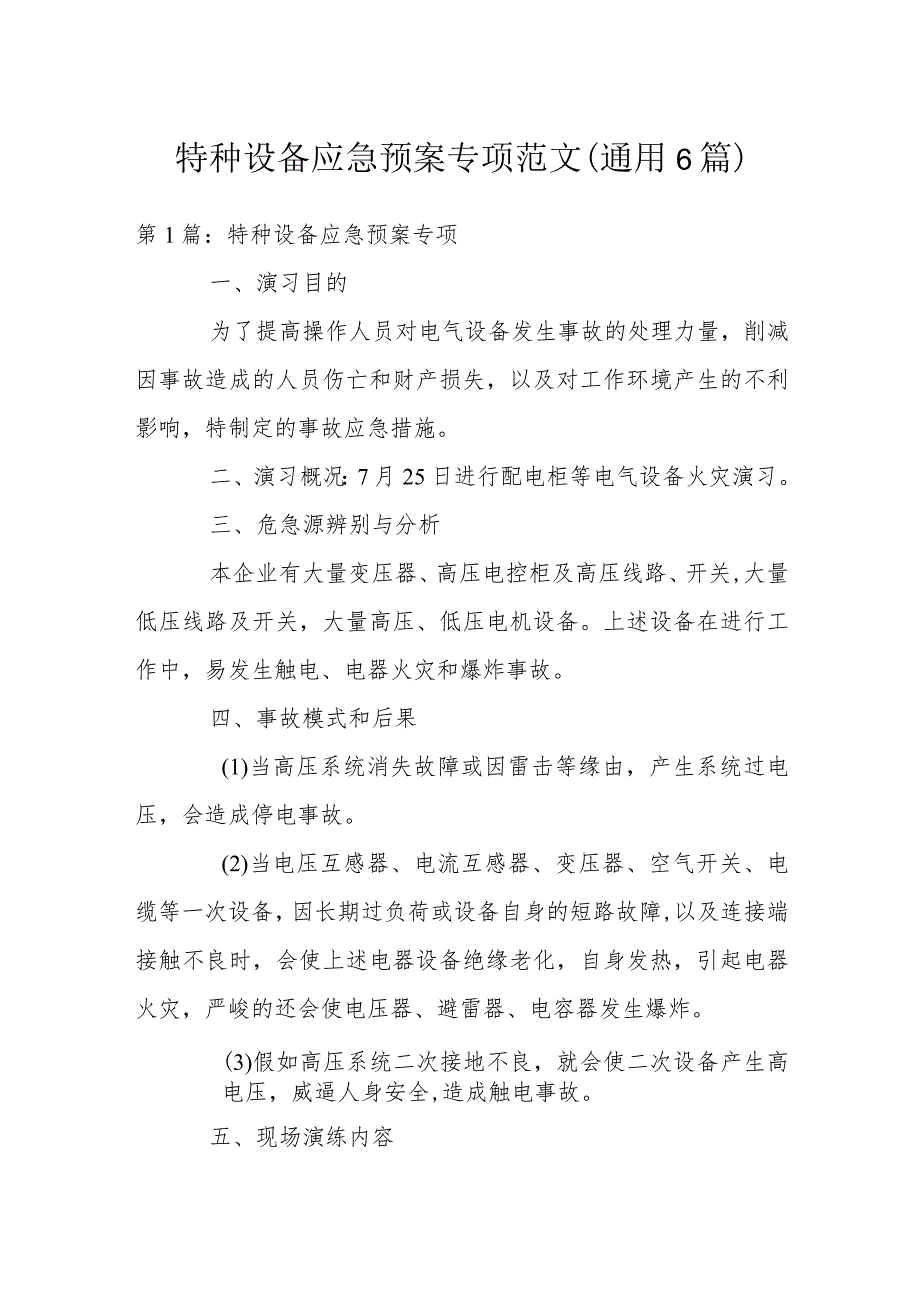 特种设备应急预案专项范文(通用6篇)
第1篇：特种设备应急预案专项
一、演习目的
为了提高操作人员对电气设备发生事故的处理力量，削减
因事故造成的人员伤亡和财产损失，以及对工作环境产生的不利
影响，特制定的事故应急措施。
二、演习概况：7月25日进行配电柜等电气设备火灾演习。
三、危急源辨别与分析
本企业有大量变压器、高压电控柜及高压线路、开关,大量
低压线路及开关，大量高压、低压电机设备。上述设备在进行工
作中，易发生触电、电器火灾和爆炸事故。
四、事故模式和后果
(1)当高压系统消失故障或因雷击等缘由，产生系统过电
压，会造成停电事故。
(2)当电压互感器、电流互感器、变压器、空气开关、电
缆等一次设备，因长期过负荷或设备自身的短路故障,以及连接端
接触不良时，会使上述电器设备绝缘老化，自身发热，引起电器
火灾，严峻的还会使电压器、避雷器、电容器发生爆炸。
(3)假如高压系统二次接地不良，就会使二次设备产生高
电压，威逼人身安全,造成触电事故。
五、现场演练内容